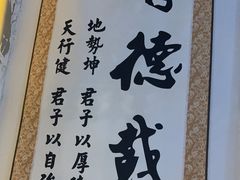 德載
地勢坤 君子以厚
天行健 君子以自強